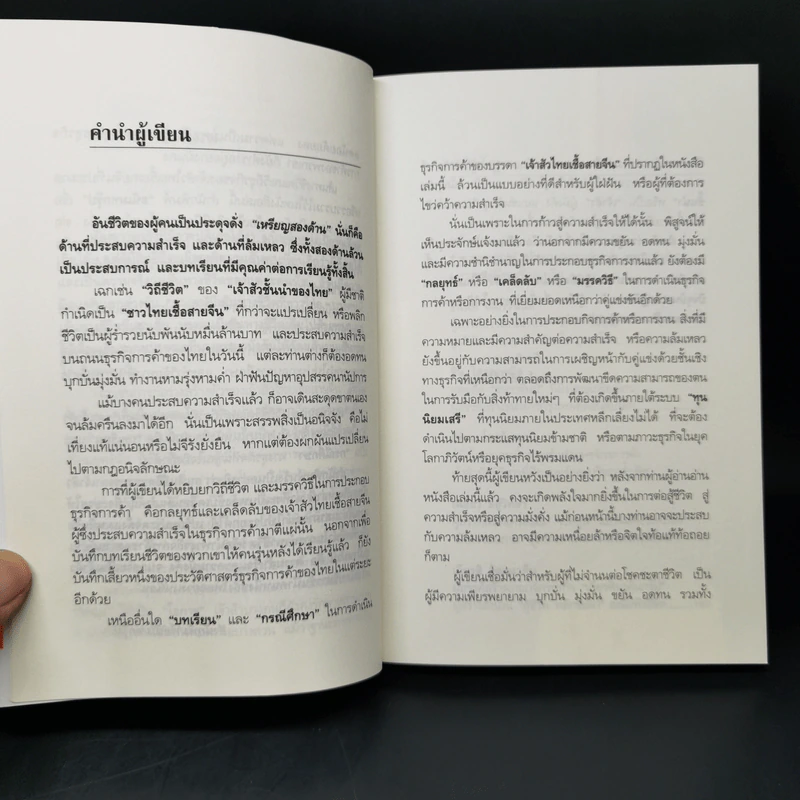 คำนำผู้เขียน
อันชีวิตของผู้คนเป็นประดุจดั่ง “เหรียญสองด้าน” นั่นก็คือ
ด้านที่ประสบความสำเร็จ และด้านที่ล้มเหลว ซึ่งทั้งสองด้านล้วน
เป็นประสบการณ์ และบทเรียนที่มีคุณค่าต่อการเรียนรู้ทั้งสิ้น
เฉกเช่น “วิถีชีวิต” ของ “เจ้าสัวชั้นนำของไทย” ผู้มีชาติ
กำเนิดเป็น “ชาวไทยเชื้อสายจีน” ที่กว่าจะแปรเปลี่ยน หรือพลิก
ชีวิตเป็นผู้ร่ำรวยนับพันนับหมื่นล้านบาท และประสบความสำเร็จ
บนถนนธุรกิจการค้าของไทยในวันนี้ แต่ละท่านต่างก็ต้องอดทน
บุกบั่นมุ่งมั่น ทำงานหามรุ่งหามค่ำ ฝ่าฟันปัญหาอุปสรรคนานัปการ
แม้บางคนประสบความสำเร็จแล้ว ก็อาจเดินสะดุดขาตนเอง
จนล้มครืนลงมาได้อีก นั่นเป็นเพราะสรรพสิ่งเป็นอนิจจัง คือไม่
เที่ยงแท้แน่นอนหรือไม่จีรังยั่งยืน หากแต่ต้องผกผันแปรเปลี่ยน
ไปตามกฎอนิจลักษณะ
การที่ผู้เขียนได้หยิบยกวิถีชีวิต และมรรควิธีในการประกอบ
ธุรกิจการค้า คือกลยุทธ์และเคล็ดลับของเจ้าสัวไทยเชื้อสายจีน
ผู้ซึ่งประสบความสำเร็จในธุรกิจการค้ามาตีแผ่นั้น นอกจากเพื่อ
บันทึกบทเรียนชีวิตของพวกเขาให้คนรุ่นหลังได้เรียนรู้แล้ว ก็ยัง
บันทึกเสี้ยวหนึ่งของประวัติศาสตร์ธุรกิจการค้าของไทยในแต่ละระยะ
อีกด้วย
เหนืออื่นใด “บทเรียน” และ “กรณีศึกษา” ในการดำเนิน
ธุรกิจการค้าของบรรดา “เจ้าสัวไทยเชื้อสายจีน” ที่ปรากฏในหนังสือ
เล่มนี้ ล้วนเป็นแบบอย่างที่ดีสำหรับผู้ใฝ่ฝัน หรือผู้ที่ต้องการ
ไขว่คว้าความสำเร็จ
นั่นเป็นเพราะในการก้าวสู่ความสำเร็จให้ได้นั้น พิสูจน์ให้
เห็นประจักษ์แจ้งมาแล้ว ว่านอกจากมีความขยัน อดทน มุ่งมั่น
และมีความชำนิชำนาญในการประกอบธุรกิจการงานแล้ว ยังต้องมี
“กลยุทธ์” หรือ “เคล็ดลับ” หรือ “มรรควิธี” ในการดำเนินธุรกิจ
การค้าหรือการงาน ที่เยี่ยมยอดเหนือกว่าคู่แข่งขันอีกด้วย
เฉพาะอย่างยิ่งในการประกอบกิจการค้าหรือการงาน สิ่งที่มี
ความหมายและมีความสำคัญต่อความสำเร็จ หรือความล้มเหลว
ยังขึ้นอยู่กับความสามารถในการเผชิญหน้ากับคู่แข่งด้วยชั้นเชิง
ทางธุรกิจที่เหนือกว่า ตลอดถึงการพัฒนาขีดความสามารถของตน
ในการรับมือกับสิ่งท้าทายใหม่ๆ ที่ต้องเกิดขึ้นภายใต้ระบบ “ทุน
นิยมเสรี” ที่ทุนนิยมภายในประเทศหลีกเลี่ยงไม่ได้ ที่จะต้อง
ดำเนินไปตามกระแสทุนนิยมข้ามชาติ หรือตามภาวะธุรกิจในยุค
โลกาภิวัตน์หรือยุคธุรกิจไร้พรมแดน
ท้ายสุดนี้ผู้เขียนหวังเป็นอย่างยิ่งว่า หลังจากท่านผู้อ่านอ่าน
หนังสือเล่มนี้แล้ว คงจะเกิดพลังใจมากยิ่งขึ้นในการต่อสู้ชีวิต สู่
ความสำเร็จหรือสู่ความมั่งคั่ง แม้ก่อนหน้านี้บางท่านอาจจะประสบ
กับความล้มเหลว อาจมีความเหนื่อยล้าหรือจิตใจท้อแท้ท้อถอย
ก็ตาม
ผู้เขียนเชื่อมั่นว่าสำหรับผู้ที่ไม่จำนนต่อโชคชะตาชีวิต เป็น
ผู้มีความเพียรพยายาม บุกบั่น มุ่งมั่น ขยัน อดทน รวมทั้ง